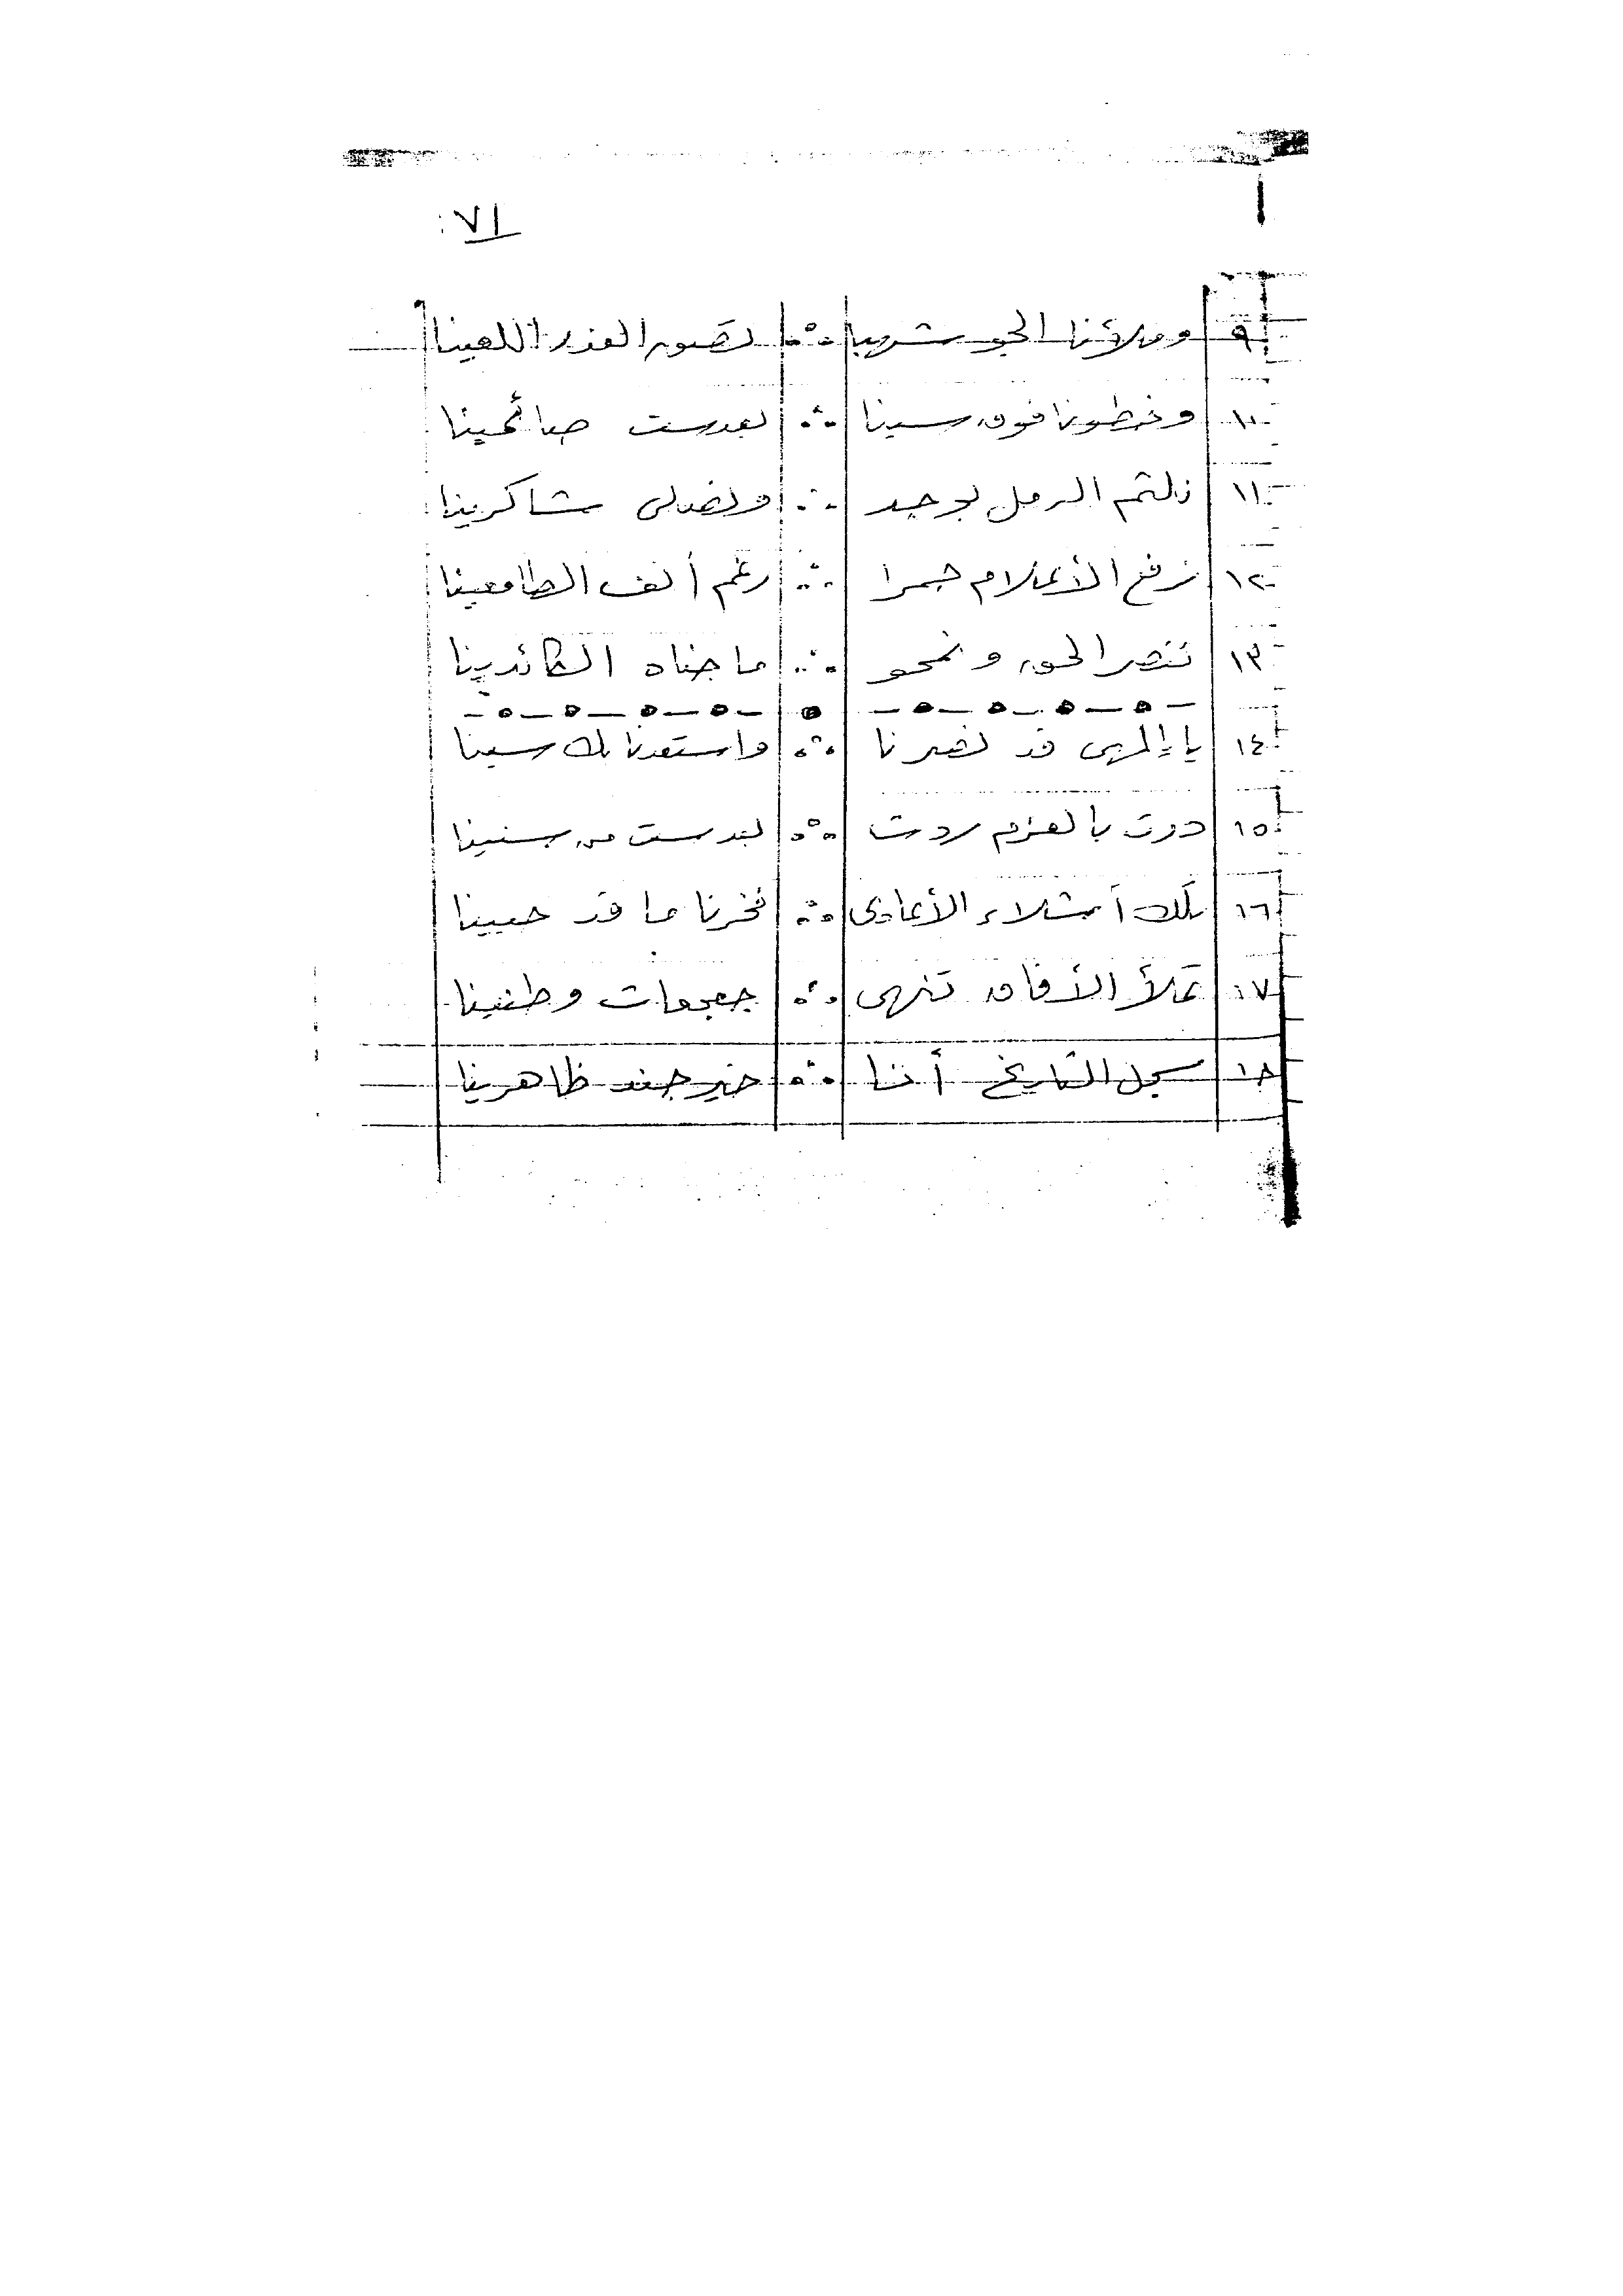 ٧١
٩ وملأنا الجو شهبا ∴ تصهر الغدر اللعينا
١٠ وخطونا فوق سينا ∴ بعد ست صائمينا
١١ نلثم الرمل بوجد ∴ ونصلى شاكرينا
١٢ نرفع الأعلام حمرا ∴ رغم أنف الطامعينا
١٣ ننصر الحق ونمحو ∴ ما جناه الكائدينا
١٤ يا إلهى قد نصرنا ∴ واستعدنا بك سينا
١٥ دون بالعزم ردت ∴ بعد ست من سنينا
١٦ تلك أشلاء الأعادى ∴ فخرنا ما قد حيينا
١٧ تملأ الآفاق تنهى ∴ جعجعات وطنينا
١٨ سجل التاريخ أنا ∴ خير جند ظاهرينا